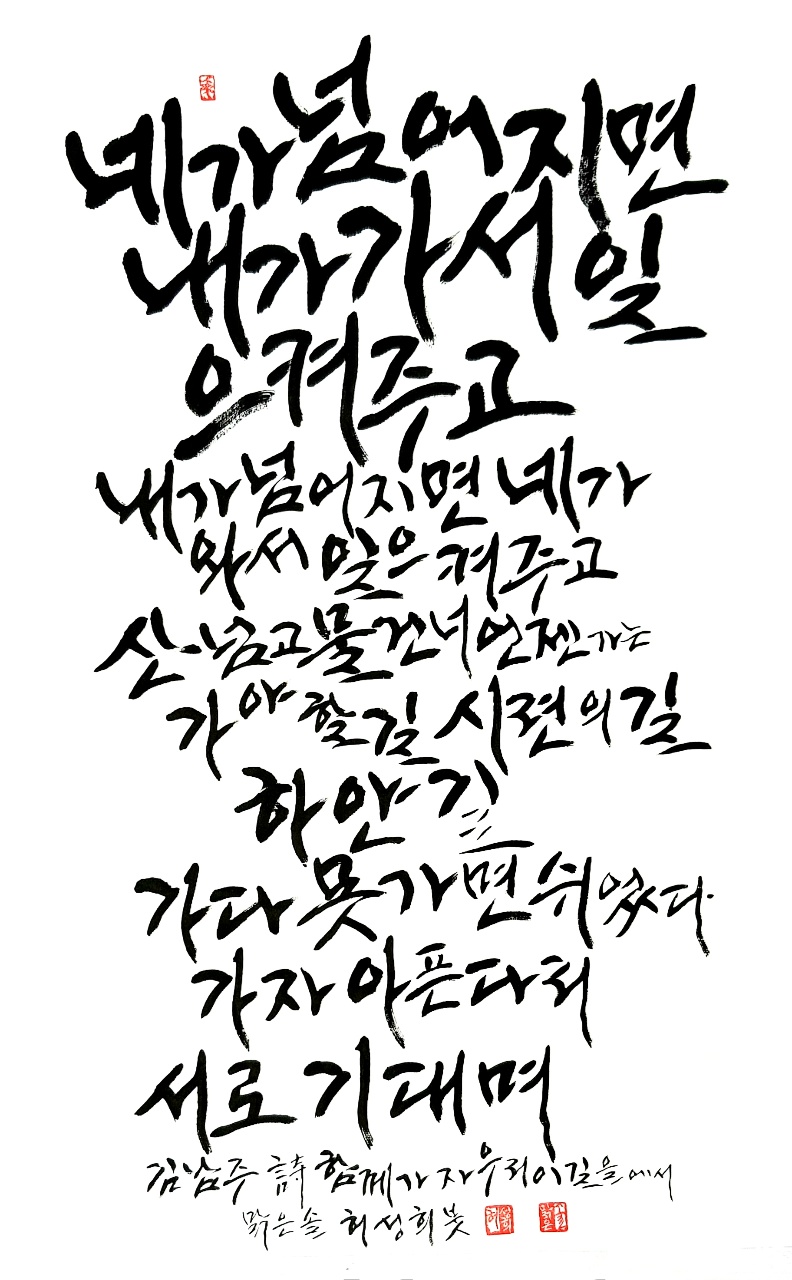 네가 넘어지면
내가 가서 일
으켜주고
내가 넘어지면 네가
와서 일으켜주고
산 넘고 물 건너 언젠가는
가야 할 길 시련의 길
하얀 길
가다 못 가면 쉬었다
가자 아픈 다리
서로 기대며
김남주 詩 함께 가자 우리 이 길을 에서
맑은솔 허성희 붓